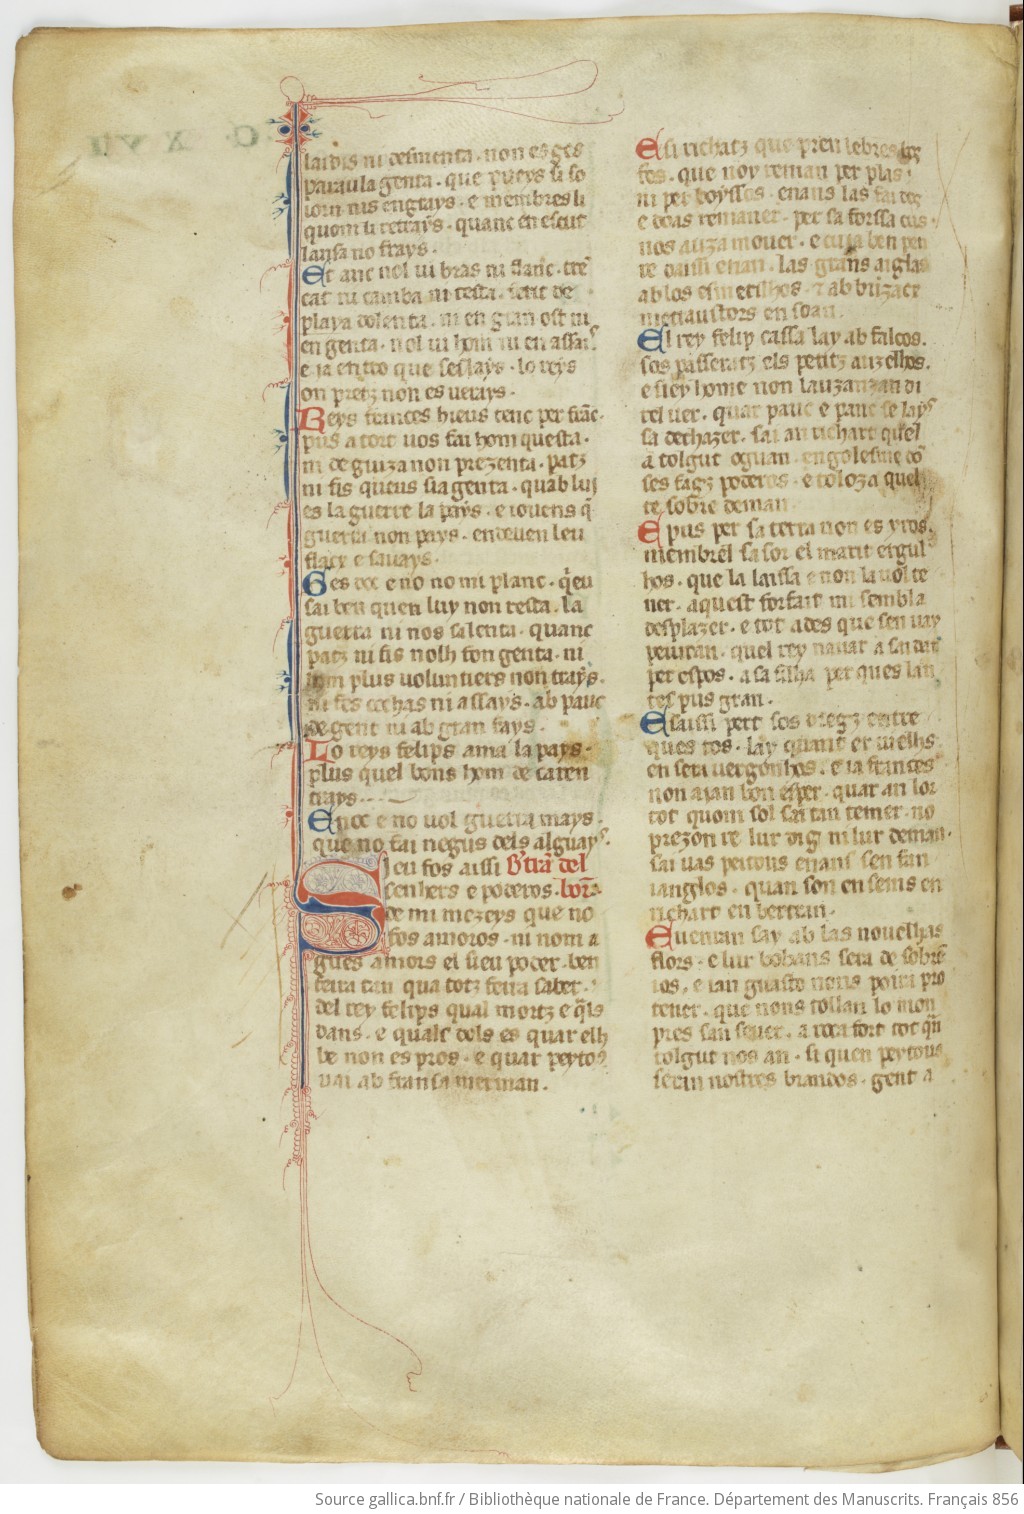 laidis ni desmenta · non es ges
paraula genta · que
iorn nis engrays · e membres li
quom li retrays · quanc en escut
lansa no frays ·
Et anc nol ui bras ni flanc · tren
cat ni camba ni testa · ferit de
playa dolenta · ni en gran ost ni
en genta · nol ui hom ni en assai
e ia entro que seslays · lo reys
on pretz non es uerays ·
Reys frances hieus tenc per franc ·
pus a tort uos fai hom questa ·
ni de guiza non prezenta · patz
ni fis queus sia genta · quab luy
es la guerre la pays · e iouens q̃
guerra non pays · endeuen leu
flacx e sauays ·
Ges doc e no no mi planc · q̃eu
sai ben quen luy non resta · la
guerra ni nos salenta · quanc
patz ni fis nolh fon genta · ni
hom plus voluntiers non trays ·
ni fes cochas ni assays · ab pauc
de gent ni ab gran fays ·
Lo reys felips ama la pays ·
plus quel bons hom de caren
trays ·
En oc e no uol guerra mays ·
que no fai negus dels alguays ·
Sieu fos aissi Bertrã del
senhers e poderos · born
de mi mezeys que no
fos amoros · ni nom a
gues amors el sieu poder · ben
feira tan qua totz feira saber ·
del rey felips qual mortz e q̃ls
dans · e quals dols es quar elh
be non es pros · e quar peytos
uai ab fransa merman ·
Esi richatz que pren lebres
fes · que noy reman per plas ·
ni per boyssos · enans las fai
e doas remaner · per sa forssa cus
nos auza mouer · e cuia ben pen
re daissi enan · las grans aiglas
ab los esmerilhos · et ab buzacx
metr austors en soan ·
El rey felip cassa lay ab falcos ·
sos passeratz els petitz auzelhos ·
e siey home non lauzan an di
rel uer · quar pauc e pauc se lays
sa dechazer · sai an richart quel
a tolgut oguan · engolesme
ses fagz poderos · e toloza quel
te sobre deman
E pus per sa terra non es yros ·
membrel sa sor el marit ergul
hos · que la laissa e non la uol te
ner · aquest forfait mi sembla
desplazer · e tot ades que sen uay
periuran · quel rey nauar a sai dat
per espos · a sa filha per ques lan
tes pus gran ·
E saissi pert sos dregz entre
ques tos · lay quant er uielhs
en sera uergonhos · e ia frances
non aian bon esper · quar an lor
tot quom sol sai tan temer · no
prezon re lur dig ni lur deman ·
sai uas peitous enans sen fan
ianglos · quan son ensems en
richart en bertran ·
E uenran say ab las nouelhas
flors · e lur bobans sera de sobre
ios · e ian guasto nons poira pro
tener · que nons tollan lo mon
pres san seuer · a roca fort tot q̃n
tolgut nos an · si quen peytous
seran nostres brandos · gent a